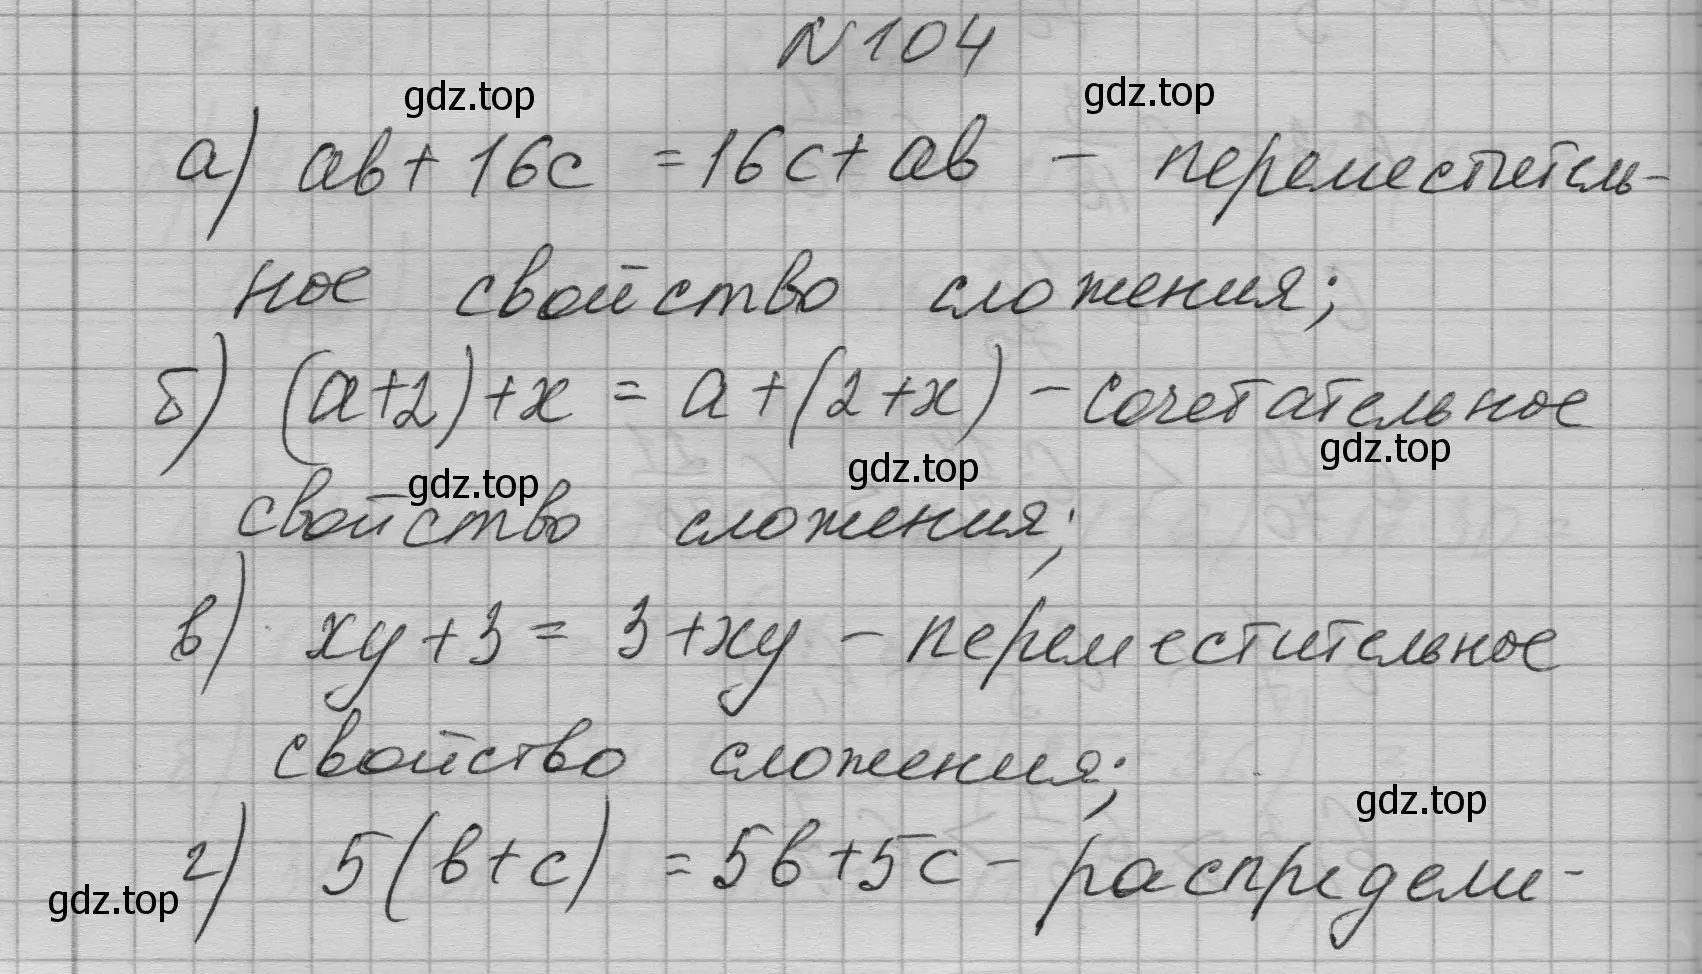 N 104
gdz.top gdz.top
а) ab + 16c = 16c + ab – переместитель-
ное свойство сложения;
б) (a+2)+x = a+(2+x) – сочетательное
gdz.top gdz.top gdz.top
свойство сложения;
в) xy+3 = 3+xy – переместительное
свойство сложения;
gdz.top
г) 5(b+c) = 5b+5c – распредели-
gdz.top